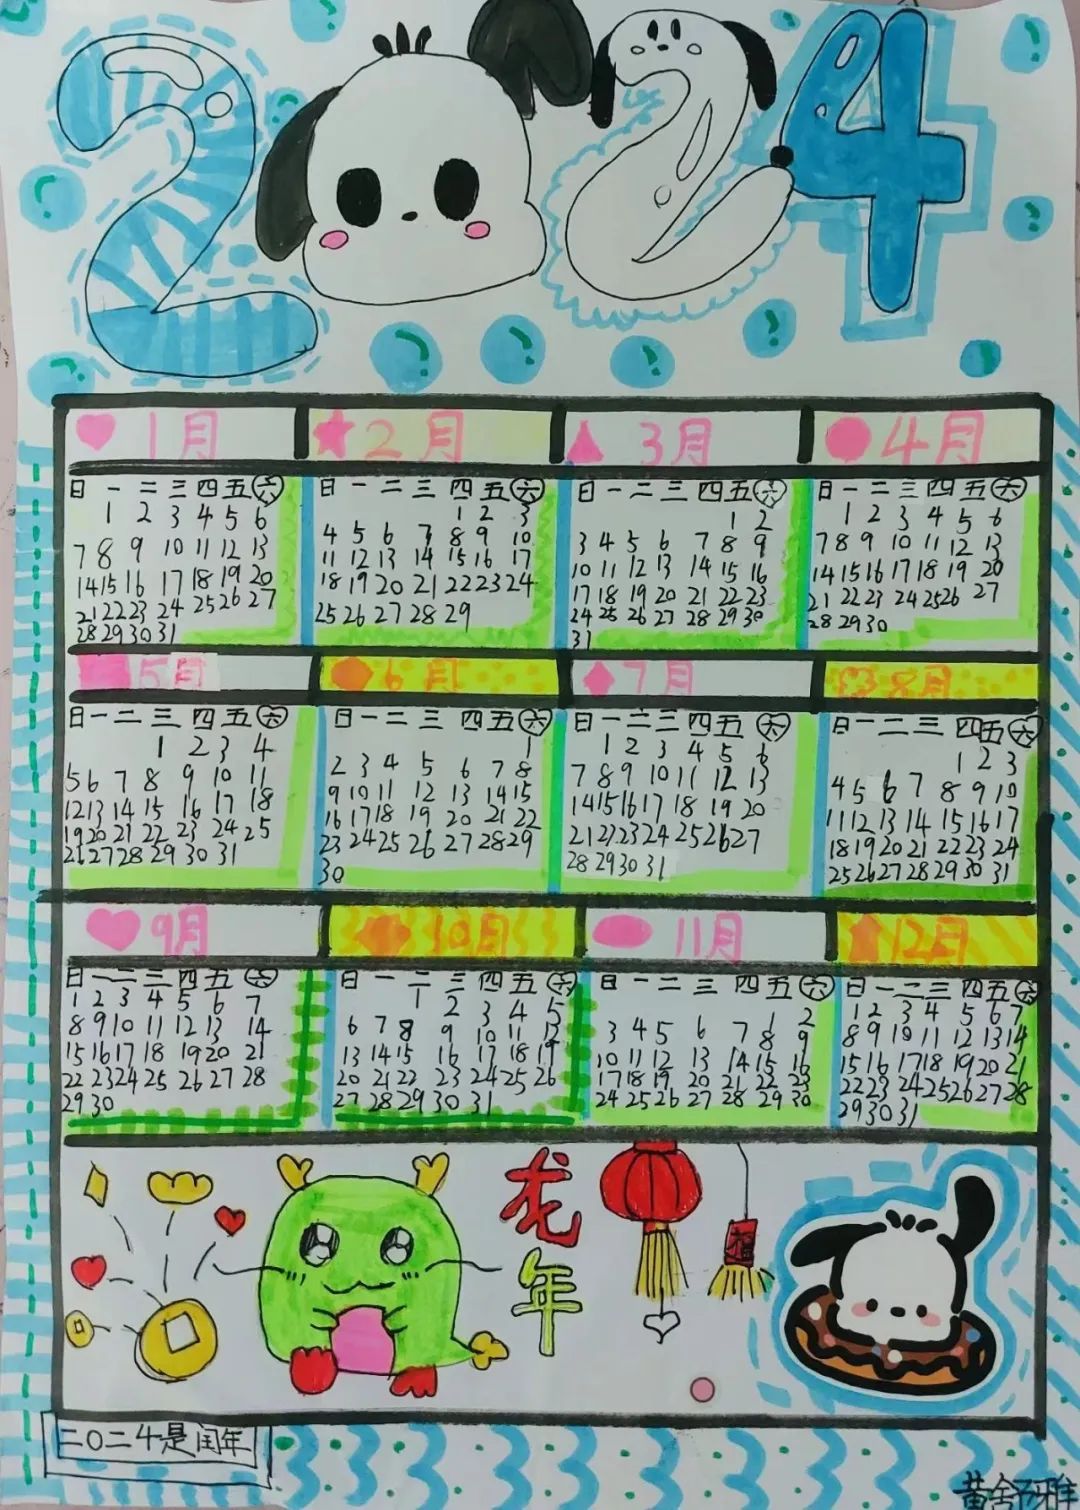 2024
1月 2月 3月 4月
日 一 二 三 四 五 六
1 2 3 4 5 6
7 8 9 10 11 12 13
14 15 16 17 18 19 20
21 22 23 24 25 26 27
28 29 30 31
日 一 二 三 四 五 六
1 2 3
4 5 6 7 8 9 10
11 12 13 14 15 16 17
18 19 20 21 22 23 24
25 26 27 28 29
日 一 二 三 四 五 六
1 2
3 4 5 6 7 8 9
10 11 12 13 14 15 16
17 18 19 20 21 22 23
24 25 26 27 28 29 30
31
日 一 二 三 四 五 六
1 2 3 4 5 6
7 8 9 10 11 12 13
14 15 16 17 18 19 20
21 22 23 24 25 26 27
28 29 30
5月 6月 7月 8月
日 一 二 三 四 五 六
1 2 3 4
5 6 7 8 9 10 11
12 13 14 15 16 17 18
19 20 21 22 23 24 25
26 27 28 29 30 31
日 一 二 三 四 五 六
1
2 3 4 5 6 7 8
9 10 11 12 13 14 15
16 17 18 19 20 21 22
23 24 25 26 27 28 29
30
日 一 二 三 四 五 六
1 2 3 4 5 6
7 8 9 10 11 12 13
14 15 16 17 18 19 20
21 22 23 24 25 26 27
28 29 30 31
日 一 二 三 四 五 六
1 2 3
4 5 6 7 8 9 10
11 12 13 14 15 16 17
18 19 20 21 22 23 24
25 26 27 28 29 30 31
9月 10月 11月 12月
日 一 二 三 四 五 六
1 2 3 4 5 6 7
8 9 10 11 12 13 14
15 16 17 18 19 20 21
22 23 24 25 26 27 28
29 30
日 一 二 三 四 五 六
1 2 3 4 5
6 7 8 9 10 11 12
13 14 15 16 17 18 19
20 21 22 23 24 25 26
27 28 29 30 31
日 一 二 三 四 五 六
1 2
3 4 5 6 7 8 9
10 11 12 13 14 15 16
17 18 19 20 21 22 23
24 25 26 27 28 29 30
日 一 二 三 四 五 六
1 2 3 4 5 6 7
8 9 10 11 12 13 14
15 16 17 18 19 20 21
22 23 24 25 26 27 28
29 30 31
龙年
福
二〇二4是闰年
黄舒雅